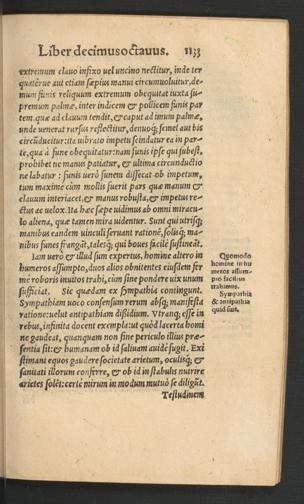 Liber decimusoctauus. 1133
extremum clauo infixo uel uncino nectitur, inde ter
quatérue aut etiam sæpius manui circumuoluitur, de-
mum funis reliquum extremum obequitat iuxta su-
premum palmæ, inter indicem & pollicem funis par
tem, quæ ad clauum tendit, & caput ad imum palmæ,
unde uenerat rursus reflectitur, denuoq; semel aut bis
circūducitur: ita uibrato impetu scindatur ea in par-
te, qua à fune obequitatur: nam funis ipse qui subest,
prohibet ne manus patiatur, & ultima circunductio
ne labatur: funis uerò funem dissecat ob impetum,
tum maximè cùm mollis fuerit pars quæ manum &
clauum interiacet, & manus robusta, & impetus re-
ctus ac uelox. Ita hæc sæpe uidimus ab omni miracu-
lo aliena, quæ tamen mira uidentur. Sunt qui utrisq;
manibus eandem uinculi seruant rationē, solisq; ma-
nibus funes frangūt, talesq; qui boues facilè sustineāt.
Iam uerò & illud sum expertus, homine altero in
humeros assumpto, duos alios obnitentes eiusdem fer
mè roboris inuitos trahi, cùm sine pondere uix unum
sufficiat. Sic quædam ex sympathia contingunt.
Sympathiam uoco consensum rerum absq; manifesta
ratione: uelut antipathiam dissidium. Vtranq; esse in
rebus, infinita docent exempla: ut quòd lacerta homi
ne gaudeat, quanquam non sine periculo illius præ-
sentia sit: & humanam ob id saliuam auidè fugit. Exi
stimant equos gaudere societate arietum, oculisq; &
sanitati illorum conferre, & ob id in stabulis nutrire
arietes solēt: certè mirum in modum mutuò se diligūt.
Testudinem
Quomodo
homine in hu
meros assum-
pto facilius
trahimus.
Sympathia
& antipathia
quid sint.